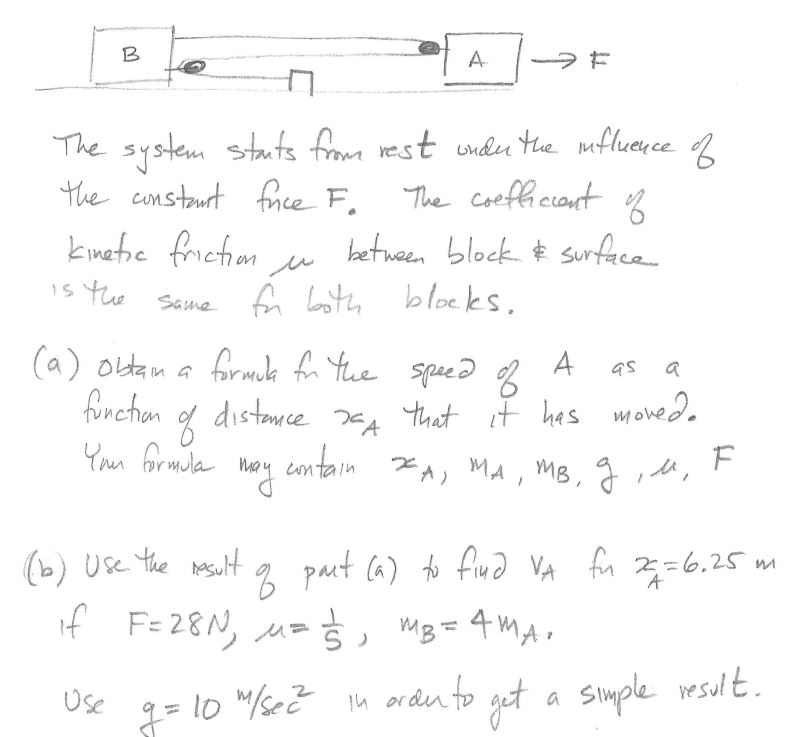 B A → F
The system starts from rest under the influence of
the constant force F. The coefficient of
kinetic friction μ between block & surface
is the same for both blocks.
(a) Obtain a formula for the speed of A as a
function of distance x_A that it has moved.
Your formula may contain x_A, m_A, m_B, g, μ, F
(b) Use the result of part (a) to find v_A for x_A = 6.25 m
if F = 28 N, μ = 1/5, m_B = 4 m_A.
Use g = 10 m/sec² in order to get a simple result.